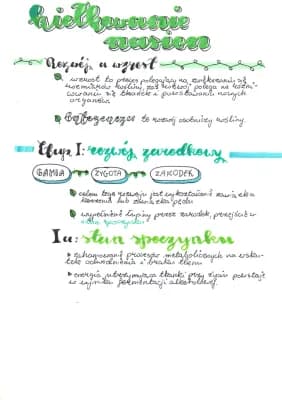 kiełkowanie
nasion
Rozwój a wzrost
wzrost to proces polegający na zwiększaniu się
rozmiarów rośliny, zaś rozwój polega na różni-
cowaniu się tkanek i powstawaniu nowych
organów.
to rozwój osobniczy rośliny.
Etap I: rozwój zarodkowy
GAMETA ZYGOTA ZARODEK
celem tego rozwoju jest wykształcenie zawiązka
korzenia lub zawiązka pędu
nasion przez zarodek, przejście w
stan spoczynku
Ia: stan spoczynku
zahamowanie procesów metabolicznych na sku-
tek odwodnienia i braku tlenu
energia utrzymująca tkanki przy życiu powstaje
w wyniku fermentacji alkoholowej.